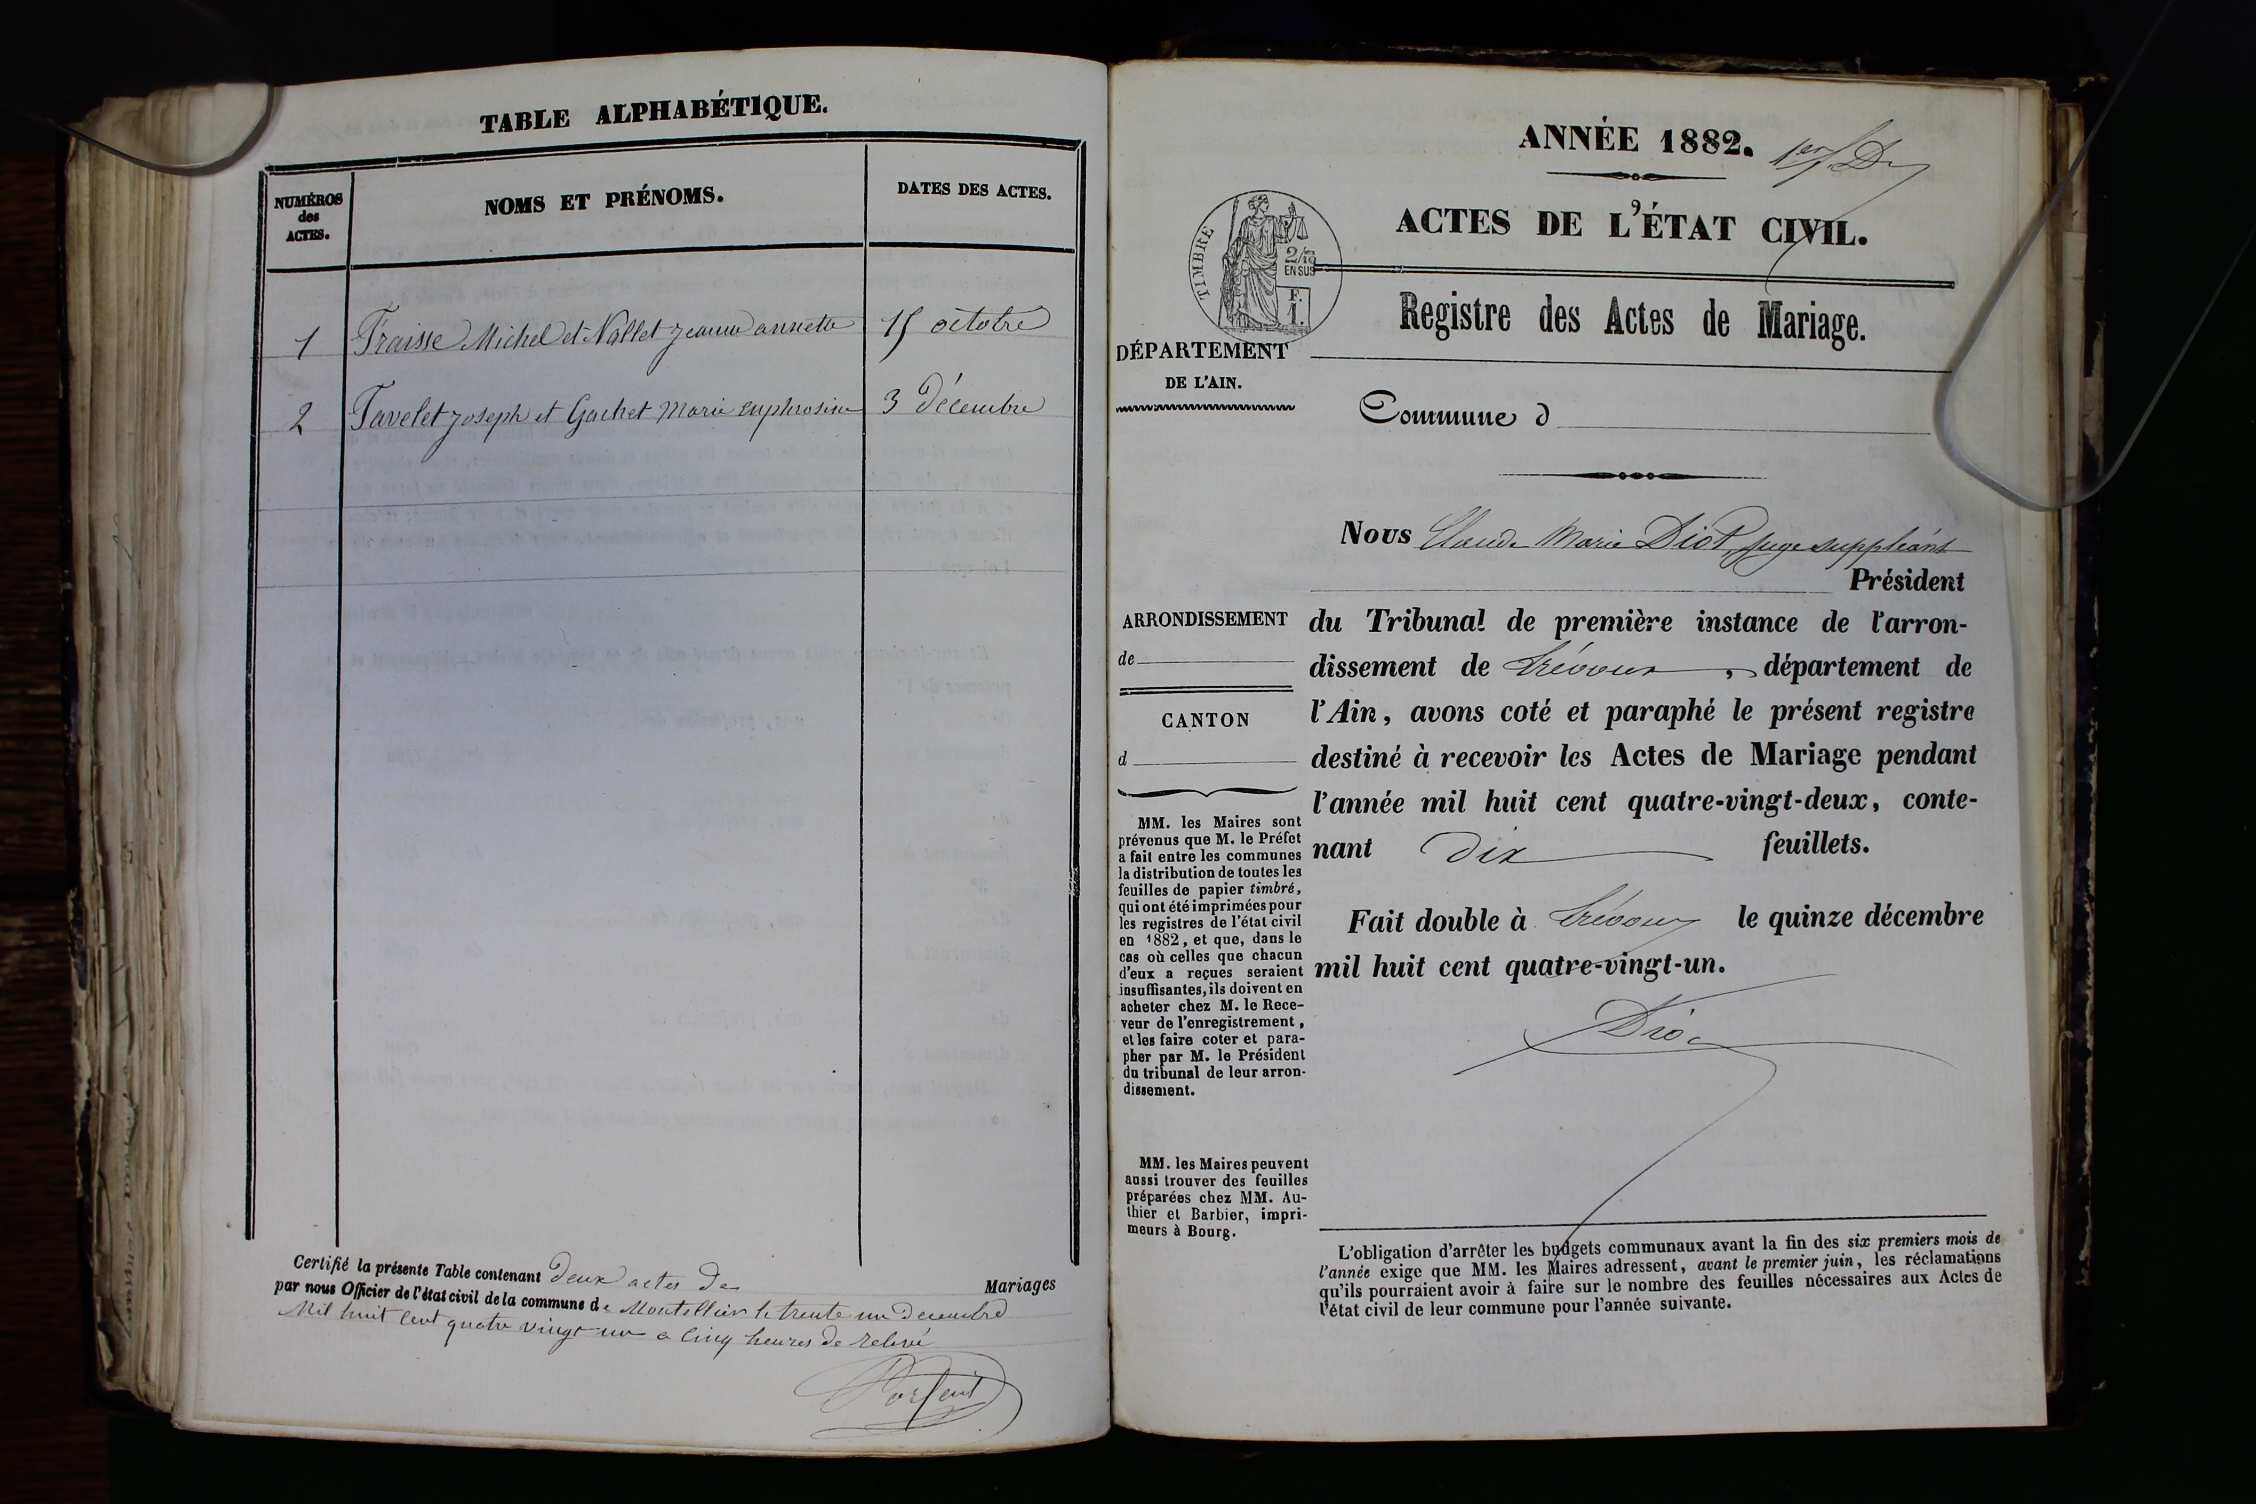 TABLE ALPHABÉTIQUE.
NUMÉROS
des
ACTES.
NOMS ET PRÉNOMS.
DATES DES ACTES.
1 Fraisse Michel et Nallet jeanne annette 15 octobre
2 Tavelet joseph et Gachet Marie Euphrosine 3 décembre
Certifié la présente Table contenant deux actes de Mariages
par nous Officier de l'état civil de la commune de Montellier le trente un Decembre
Mil huit cent quatre vingt un a Cinq heures de relevé
ANNÉE 1882.
1er f.
ACTES DE L'ÉTAT CIVIL.
TIMBRE
2/10
EN SUS
F.
1.
Registre des Actes de Mariage.
DÉPARTEMENT
DE L'AIN.
Commune d
Nous Claude Marie Diot, Juge suppléant
Président
du Tribunal de première instance de l'arron-
dissement de Trévoux, département de
l'Ain, avons coté et paraphé le présent registre
destiné à recevoir les Actes de Mariage pendant
l'année mil huit cent quatre-vingt-deux, conte-
nant dix feuillets.
Fait double à Trévoux le quinze décembre
mil huit cent quatre-vingt-un.
Diot
ARRONDISSEMENT
de
CANTON
d
MM. les Maires sont
prévenus que M. le Préfet
a fait entre les communes
la distribution de toutes les
feuilles de papier timbré,
qui ont été imprimées pour
les registres de l'état civil
en 1882, et que, dans le
cas où celles que chacun
d'eux a reçues seraient
insuffisantes, ils doivent en
acheter chez M. le Rece-
veur de l'enregistrement,
et les faire coter et para-
pher par M. le Président
du tribunal de leur arron-
dissement.
MM. les Maires peuvent
aussi trouver des feuilles
préparées chez MM. Au-
thier et Barbier, impri-
meurs à Bourg.
L'obligation d'arrêter les budgets communaux avant la fin des six premiers mois de
l'année exige que MM. les Maires adressent, avant le premier juin, les réclamations
qu'ils pourraient avoir à faire sur le nombre des feuilles nécessaires aux Actes de
l'état civil de leur commune pour l'année suivante.